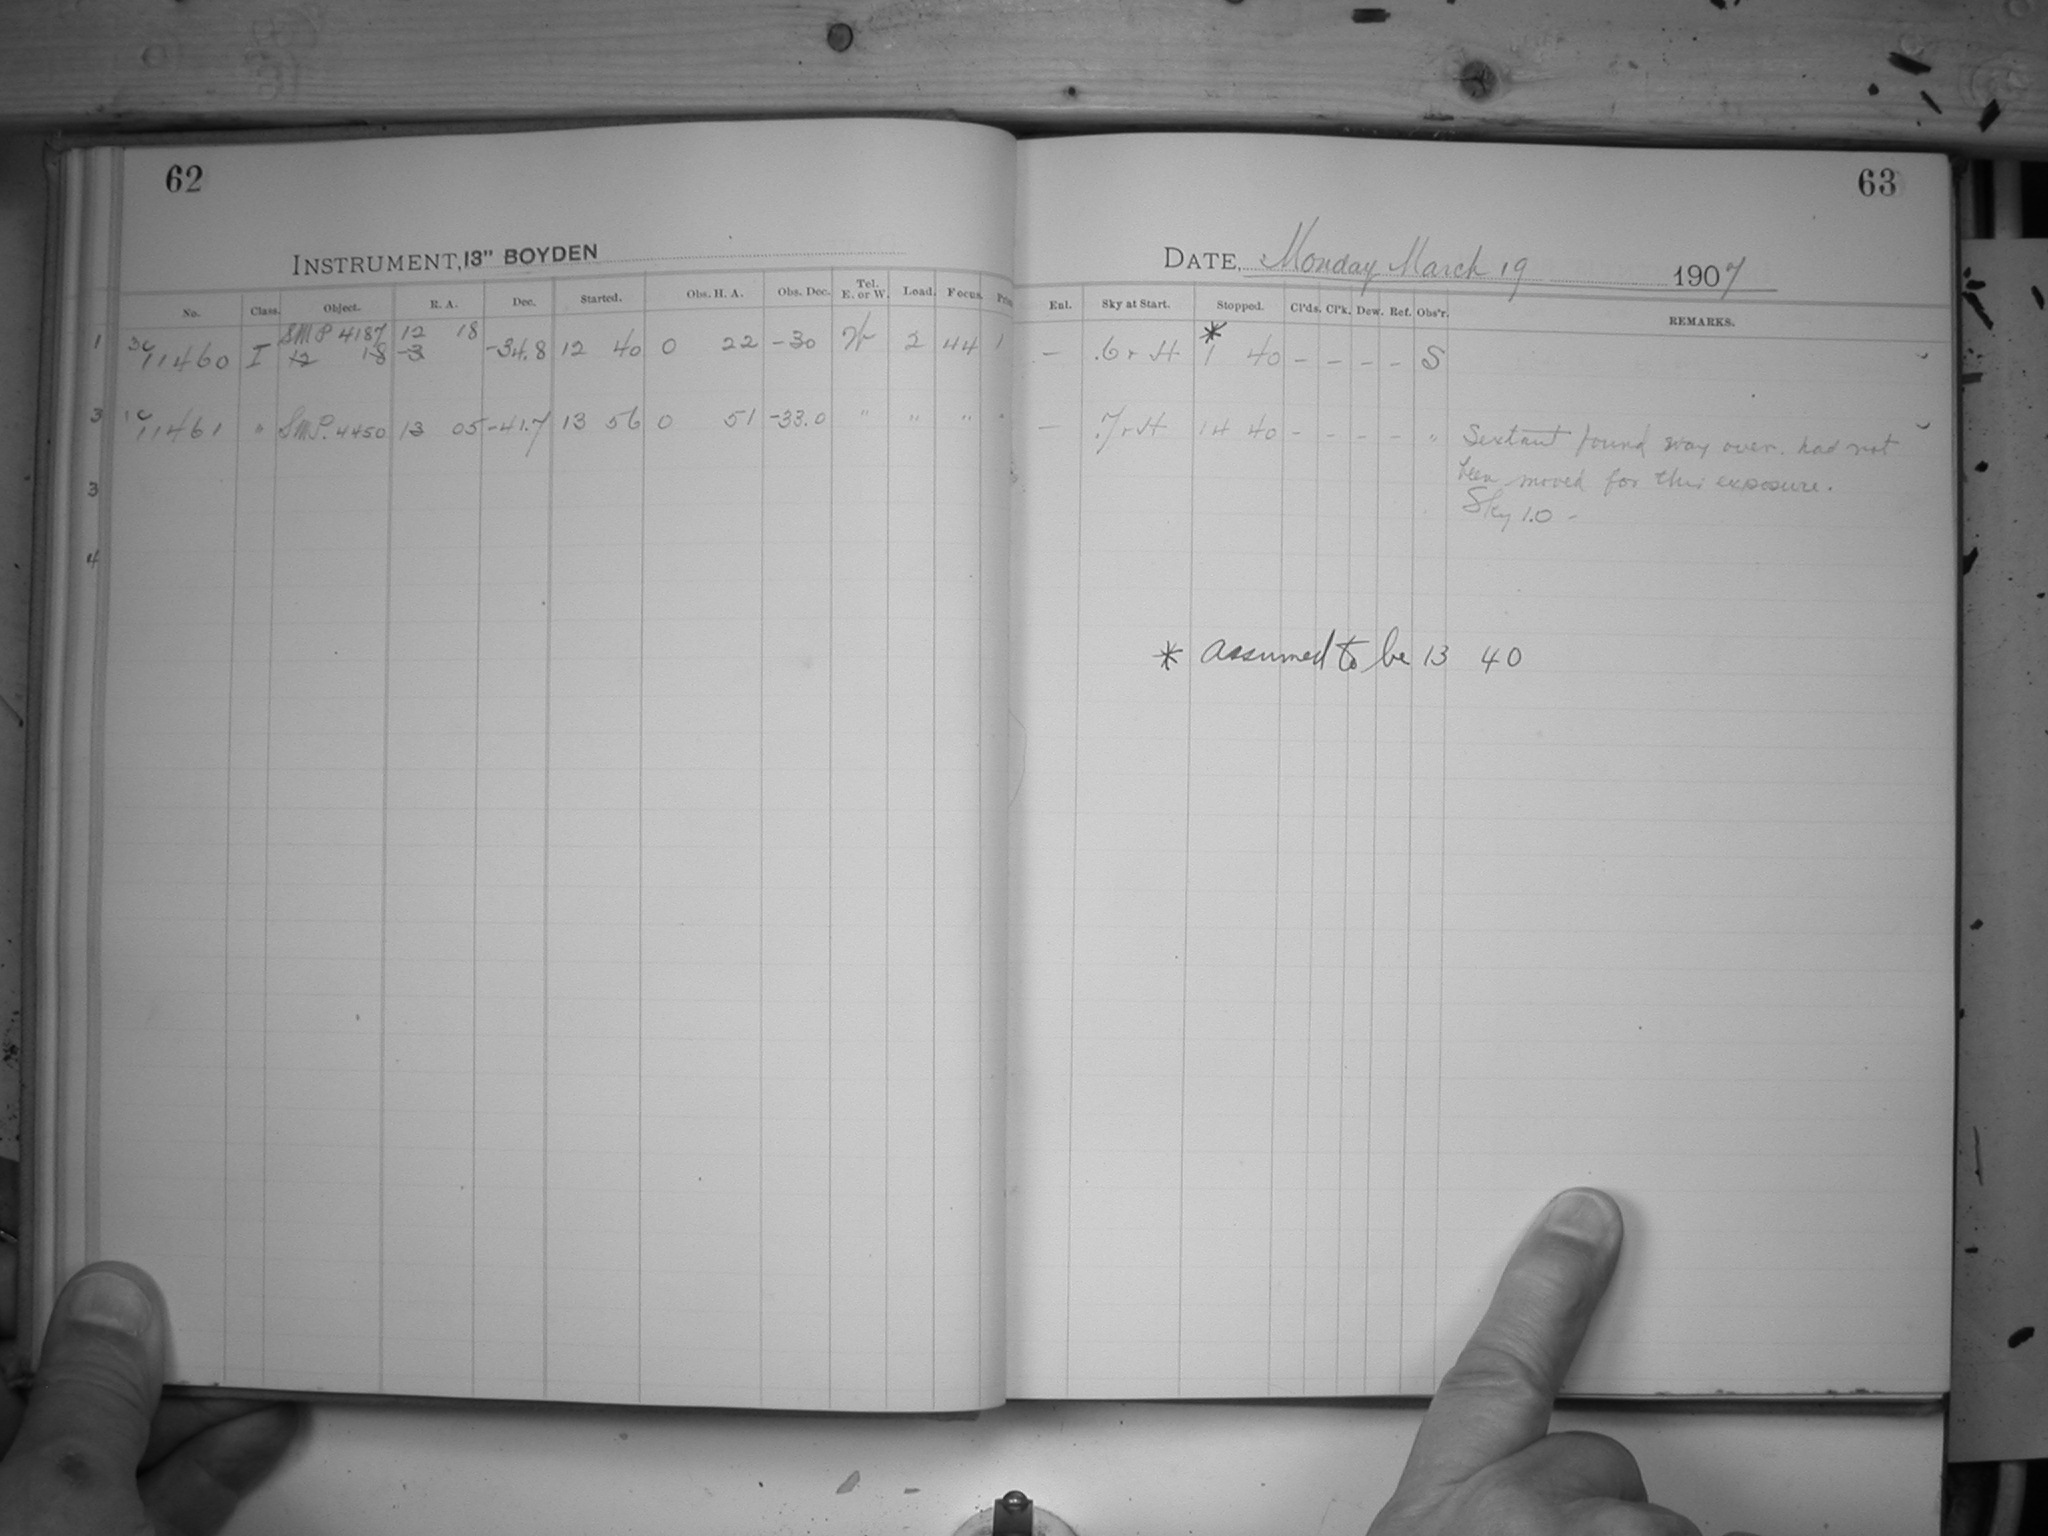 62
INSTRUMENT, 13" BOYDEN
No. Class. Object. R. A. Dec. Started. Obs. H. A. Obs. Dec. Tel. E. or W. Load. Focus.
SMP 4187 12 18
1 11460 I 12 18 -3 -34.8 12 40 0 22 -30 W 2 44 1
3 11461 " SMP. 4450 13 05 -41.7 13 56 0 51 -33.0 " " " "
3
4
63
DATE, Monday March 19 1907
Enl. Sky at Start. Stopped. Cl'ds. Cl'k. Dew. Ref. Obs'r. REMARKS.
*
– .6 r H 1 40 – – – – S
– .7 r H 14 40 – – – – " Sextant found way over. had not
been moved for this exposure.
Sky 1.0 –
* assumed to be 13 40